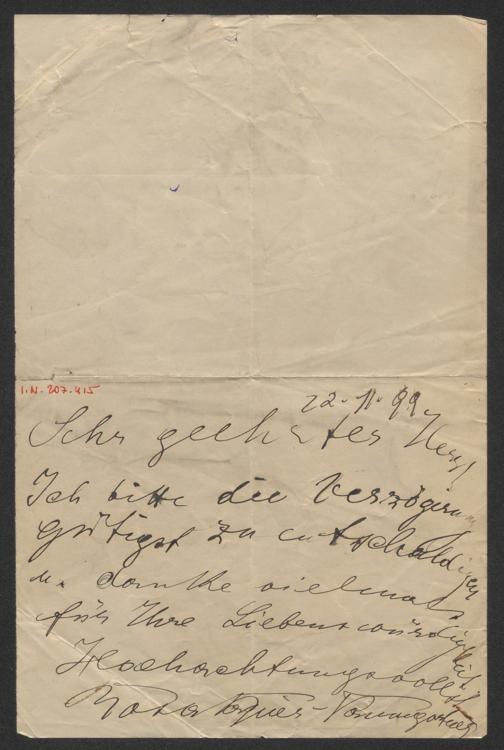 I.N. 207.415
22. 11. 99
Sehr geehrter Herr!
Ich bitte die Verzögerung
gütigst zu entschuldigen
u. danke vielmals
für Ihre Liebenswürdigkeit.
Hochachtungsvollst
Rosa Papier-Paumgartner